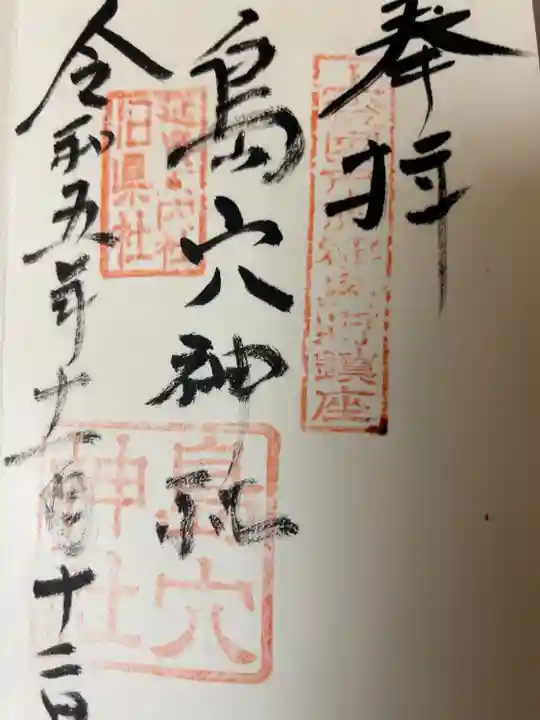 奉拝
鎮座
島穴神社
延喜式内社
旧県社
島穴
神社
令和五年十一月十二日